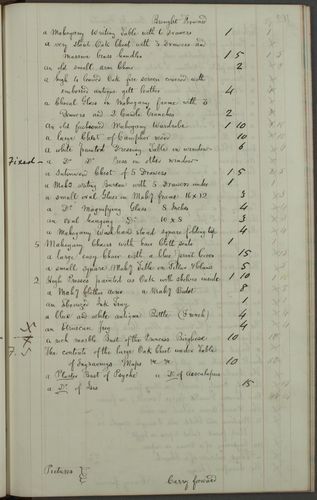 Brought Forward
a Mahogany Writing Table with 6 Drawers 1
a very stout Oak Chest with 3 Drawers and
Massive Brass handles 1 5
an old small arm Chair 2
a high 4 leaved Oak fire screen covered with
embossed antique gilt leather 4
a Cheval Glass in Mahogany frame with 3
Drawers and 2 Candle branches 2
An old fashioned Mahogany Wardrobe 1 10
a large Chest of Camphor wood 10
a white painted Dressing Table in window 6
Fixed - a Do Do Press in other window
a Chest of 5 Drawers 15
a Mahy writing Bureau with 5 Drawers under 1
a small oval Glass in Mahy frame 16 x 12 3
a Do Magnifying Glass 8 Inches 4
an oval hanging Do 10 x 8 3
a Mahogany Wash hand stand square folding top 4
5 Mahogany Chairs with hair Cloth seats 1
a large easy Chair with a blue print cover 15
a small square Mahy Table on Pillar & Claws 5
2 high Presses painted as Oak with shelves inside 1 10
a Mahy a Mahy Bidet 8
an Ebonized Ink Tray 1
a blue and white antique Bottle (French) 4
an Etruscan jug 4
a rich marble Bust of the Princess Borghese 10
The contents of the large Oak Chest under Table
of Engravings Maps &c &c 10
a Plaster Bust of Psyche a Do of Aesculapius
a Do of Isis 15
Pictures
Carry forward